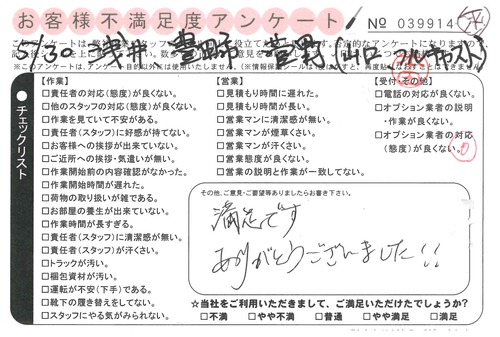 お客様不満足度アンケート
No 039914
5/30 浅井 豊田市 菅野 山口
【作業】
□責任者の対応(態度)が良くない。
□他のスタッフの対応(態度)が良くない。
□作業を見ていて不安がある。
□責任者(スタッフ)に好感が持てない。
□お客様への挨拶が出来ていない。
□ご近所への挨拶・気遣いが無い。
□作業開始前の内容確認がなかった。
□作業開始時間が遅れた。
□荷物の取り扱いが雑である。
□お部屋の養生が出来ていない。
□作業時間が長すぎる。
□責任者(スタッフ)に清潔感が無い。
□責任者(スタッフ)が汗くさい。
□トラックが汚い。
□梱包資材が汚い。
□運転が不安(下手)である。
□靴下の履き替えをしてない。
□スタッフにやる気がみられない。
【営業】
□見積もり時間に遅れた。
□見積もり時間が長い。
□営業マンに清潔感が無い。
□営業マンが煙草くさい。
□営業マンが汗くさい。
□営業態度が良くない。
□営業の説明と作業が一致してない。
【受付・その他】
□電話の対応が良くない。
□オプション業者の説明
・作業が良くない。
□オプション業者の対応
(態度)が良くない。
チェックリスト
その他、ご意見・ご要望等ありましたらお書き下さい。
満足です
ありがとうございました!!
☆当社をご利用いただきまして、ご満足いただけたでしょうか?
□不満 □やや不満 □普通 □やや満足 □満足